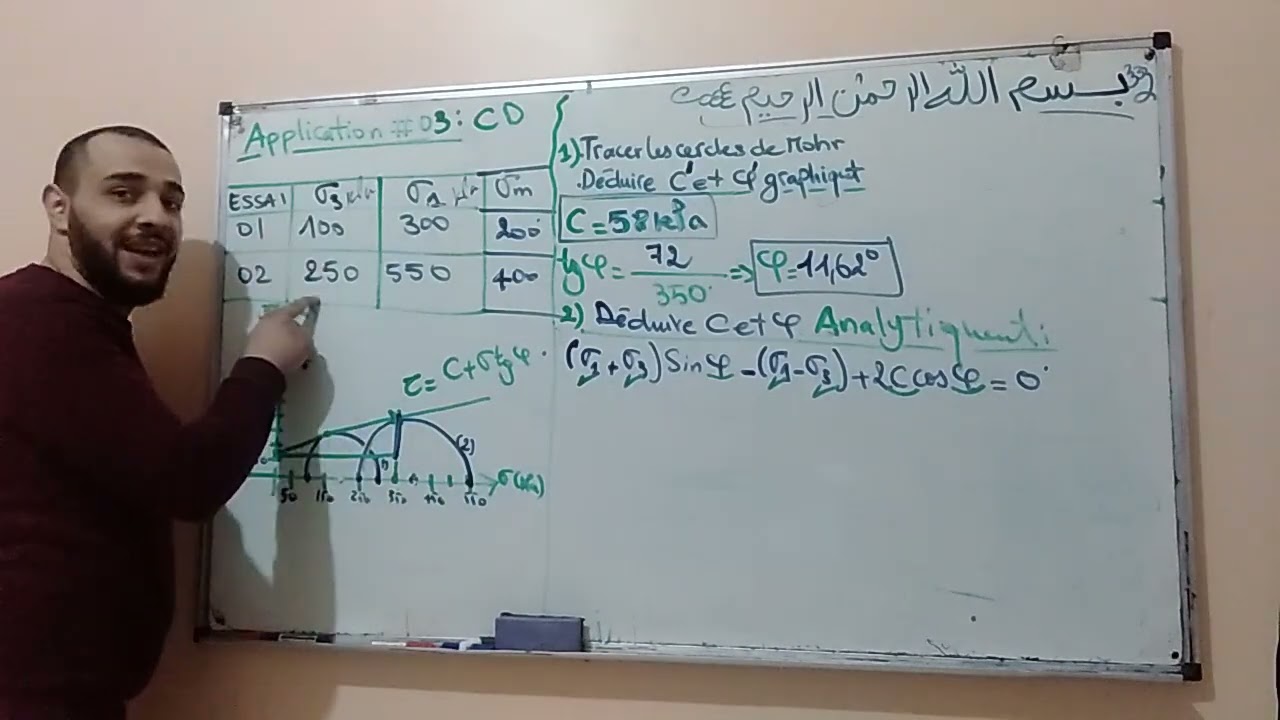 بسم الله الرحمن الرحيم
Application #03: CD
ESSAI σ3 σ1 σm
01 100 300 200
02 250 550 400
τ = C + σ tg φ
(2)
50 150 250 350 450 550
1) Tracer les cercles de Mohr
. Déduire C' et φ' graphiqt
C = 58 kPa
tg φ = 72 / 350 ⇒ φ = 11,62°
2) Déduire C et φ Analytiquemt:
(σ1 + σ3) Sin φ - (σ1 - σ3) + 2C cos φ = 0